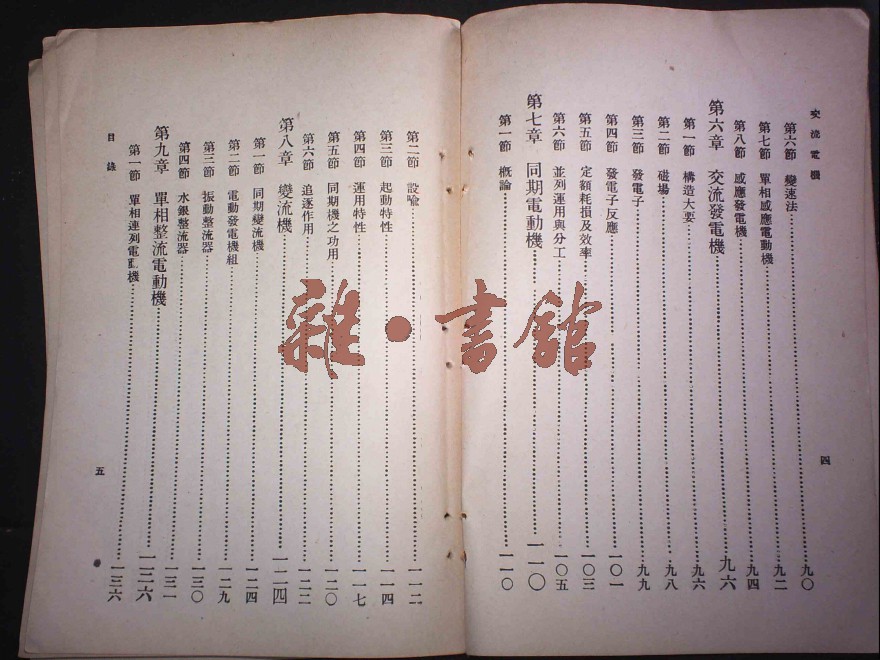 交流電機
第六節 變速法……九〇
第七節 單相感應電動機……九二
第八節 感應發電機……九四
第六章 交流發電機……九六
第一節 構造大要……九六
第二節 磁場……九八
第三節 發電子……九九
第四節 發電子反應……一〇一
第五節 定額耗損及效率……一〇三
第六節 並列運用與分工……一〇五
第七章 同期電動機……一一〇
第一節 概論……一一〇
四
第二節 設喻……一一二
第三節 起動特性……一一四
第四節 運用特性……一一七
第五節 同期機之功用……一二〇
第六節 追逐作用……一二二
第八章 變流機……一二四
第一節 同期變流機……一二四
第二節 電動發電機組……一二九
第三節 振動整流器……一三〇
第四節 水銀整流器……一三一
第九章 單相整流電動機……一三六
第一節 單相連列電動機……一三六
目錄
五
雜·書館